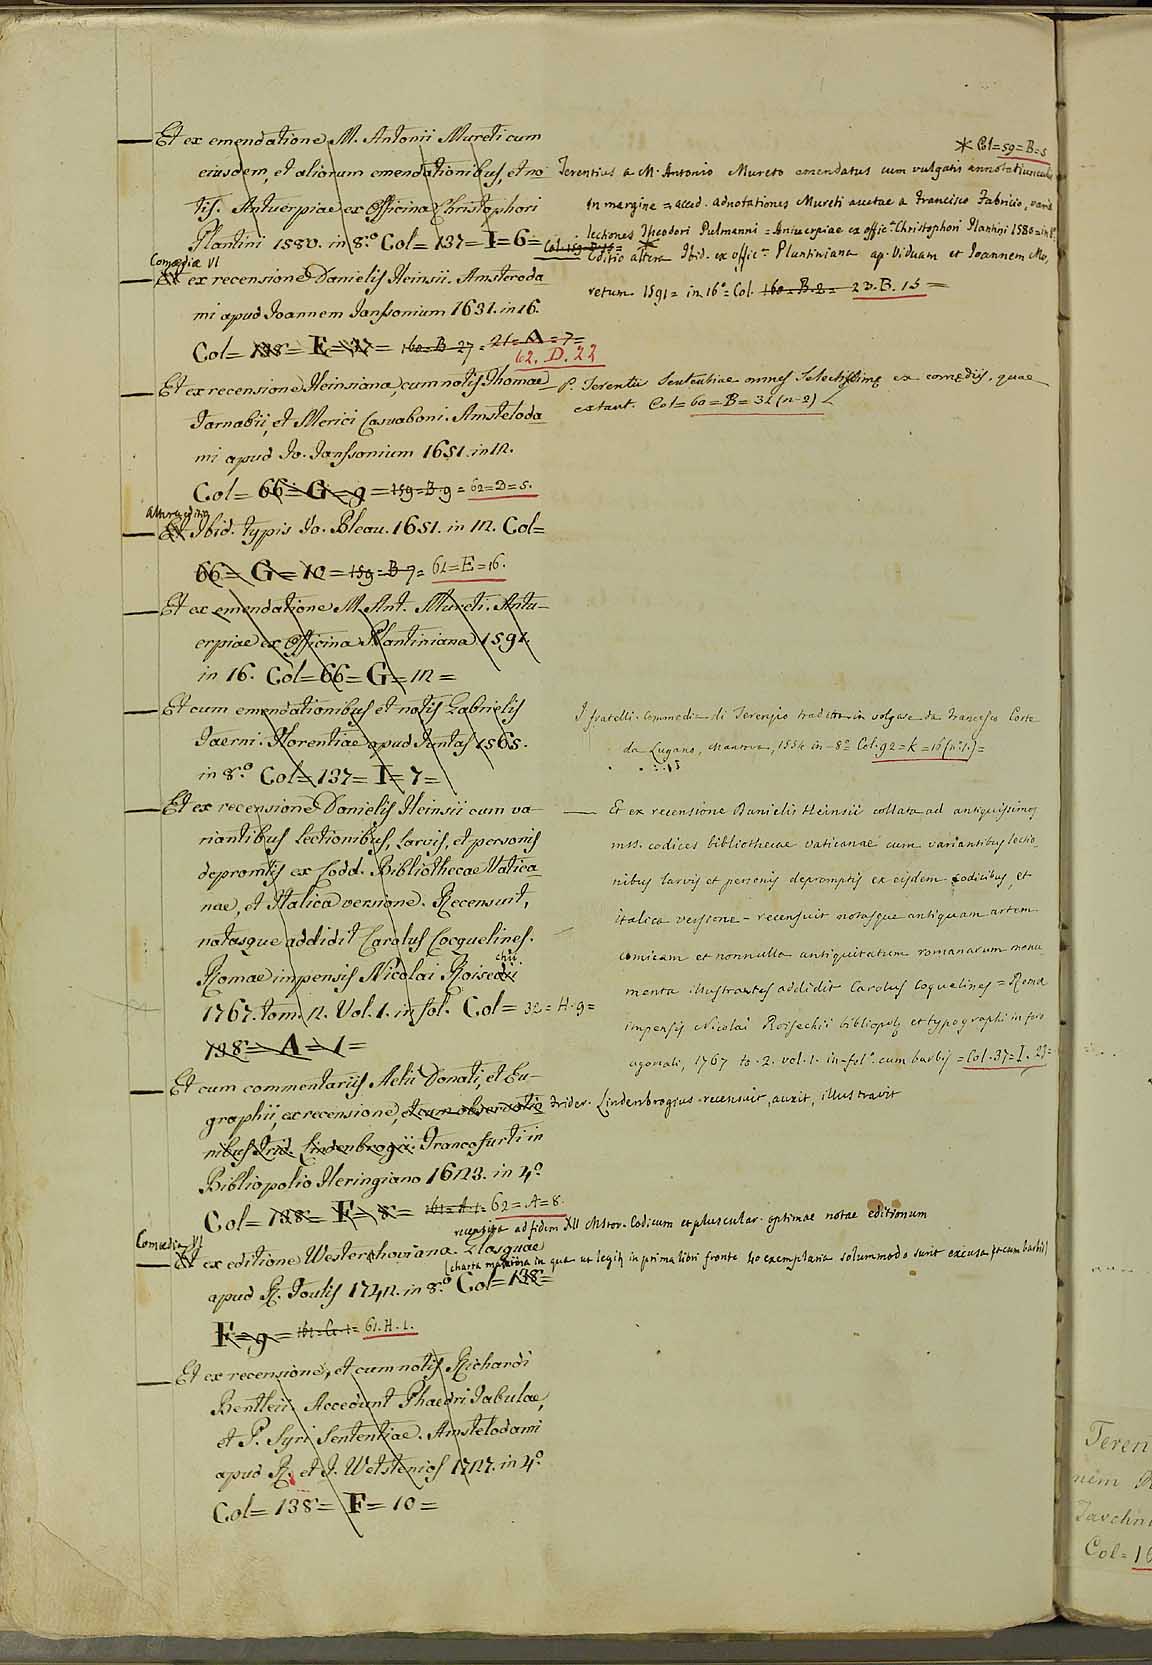 — Et ex emendatione M. Antonii Mureti cum
eiusdem, et aliorum emendationibus, et no
tis. Antuerpiae ex Officina Christophori
Plantini 1580. in 8.º Col= 137= I= 6=
Col. 159. B. 16=
* Col= 59= B= 5
Terentius a M. Antonio Mureto emendatus cum vulgatis annotatiunculis
in margine = acced. adnotationes Mureti auctae a Francisco Fabricio, varie
lectiones Theodori Pulmanni = Antuerpiae ex offic.ª Christophori Plantini 1580= in 8º
*
Editio altera Ibid. ex offic.ª Plantiniana ap. Viduam et Joannem Mo,
retum 1591= in 16º= Col. 160= B. 2= 23. B. 15=
Comœdiæ VI
— Et ex recensione Danielis Heinsii. Amsteroda
mi apud Joannem Janssonium 1631. in 16.
Col= 138= E= 27= 160= B 27= 21= A= 7=
62. D. 22
— Et ex recensione Heinsiana, cum notis Thomae
Farnabii, et Merici Casuaboni. Amsteloda
mi apud Jo. Janssonium 1651. in 12.
Col= 66= G= 9= 159= B 9= 62= D= 5.
— P. Terentii Sententiae omnes selectissimę ex comędijs, quae
extant. Col= 60= B= 32 (n-2)
Altera editio
— Et Ibid. typis Jo. Bleau. 1651. in 12. Col=
66= G= 10= 159= B 7= 61= E= 16.
— Et ex emendatione M. Ant. Mureti. Antu-
erpiae ex Officina Plantiniana 1591.
in 16. Col= 66= G= 12=
— Et cum emendationibus et notis Gabrielis
Faerni. Florentiae apud Juntas 1565.
in 8.º Col= 137= I= 7=
I fratelli. Commedia di Terenzio tradotta in volgare da Francesco Corte
da Lugano, Mantova, 1554 in-8º Col. 92= K= 16 (n.º 1.)=
— Et ex recensione Danielis Heinsii cum va-
riantibus Lectionibus, Larvis, et personis
depromtis ex Codd. Bibliothecae Vatica-
nae, et Italica versione. Recensuit,
notasque addidit Carolus Cocquelines.
Romae impensis Nicolai Roisedii
chii
1767. tom. 2. Vol. 1. in fol.º Col= 32= H. 9=
138= A= 1=
— Et ex recensione Danielis Heinsii collata ad antiquissimos
mss. codices bibliothecae vaticanae cum variantibus lectio,
nibus larvis et personis depromptis ex eisdem codicibus, et
italica versione - recensuit notasque antiquam artem
comicam et nonnulla antiquitatum romanarum monu
menta illustrantes addidit Carolus Coquelines = Roma
impensis Nicolai Roisechii bibliopolę et typographi in foro
agonali, 1767 to. 2. vol. 1. in-folº. cum barbis = Col. 37= I. 2)=
— Et cum commentariis Aelii Donati, et Eu-
graphii, ex recensione, et cum observatio frider. Lindenbrogius recensuit, auxit, illustravit
nibus Frid. Lindenbrogii. Francofurti in
Bibliopolio Heringiano 1623. in 4.º
Col= 138= F= 8= 161= A. 1= 62= A= 8.
recensita ad fidem XII Mstor. Codicum et pluscular. optimae notae editionum
Comœdiæ VI
— Et ex editione Westerhoviana. Glasguae
(charta majora in qua ut legit. in prima libri fronte 40 exemplaria solummodo sunt excusa et cum barbis)
apud R. Foulis 1742. in 8.º Col= 138=
F= 9= 161= C. 1= 61. H. 1.
— Et ex recensione, et cum notis Richardi
Bentleii. Accedunt Phaedri Fabulae,
et P. Syri Sententiae. Amstelodami
apud R. et J. Wetstenios 1727. in 4.º
Col= 138= F= 10=
Teren
nem
Tauchni
Col=